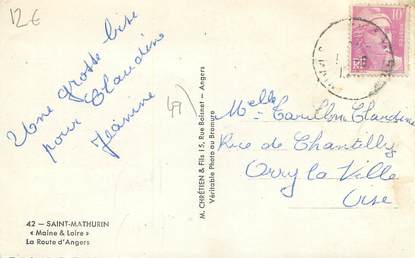 12€
Une grosse bise
pour Claudine
Jeanine
(49)
42 — SAINT-MATHURIN
« Maine & Loire »
La Route d'Angers
M. CHRÉTIEN & Fils 15, Rue Boisnet - Angers
Véritable Photo au Bromure
10f
RF
Melle Claudine
Rue de Chantilly
Orry la Ville
Oise